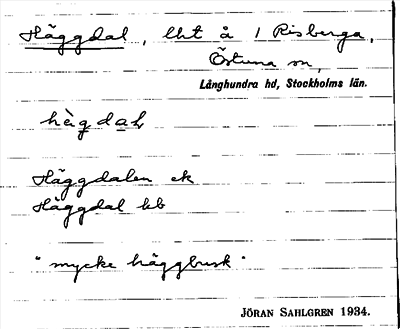 Häggdal, lht å 1 Risberga,
Östuna sn,
Långhundra hd, Stockholms län.
hèg dal,
Häggdalen ek
Häggdal kb
"mycke häggbusk"
JÖRAN SAHLGREN 1934.